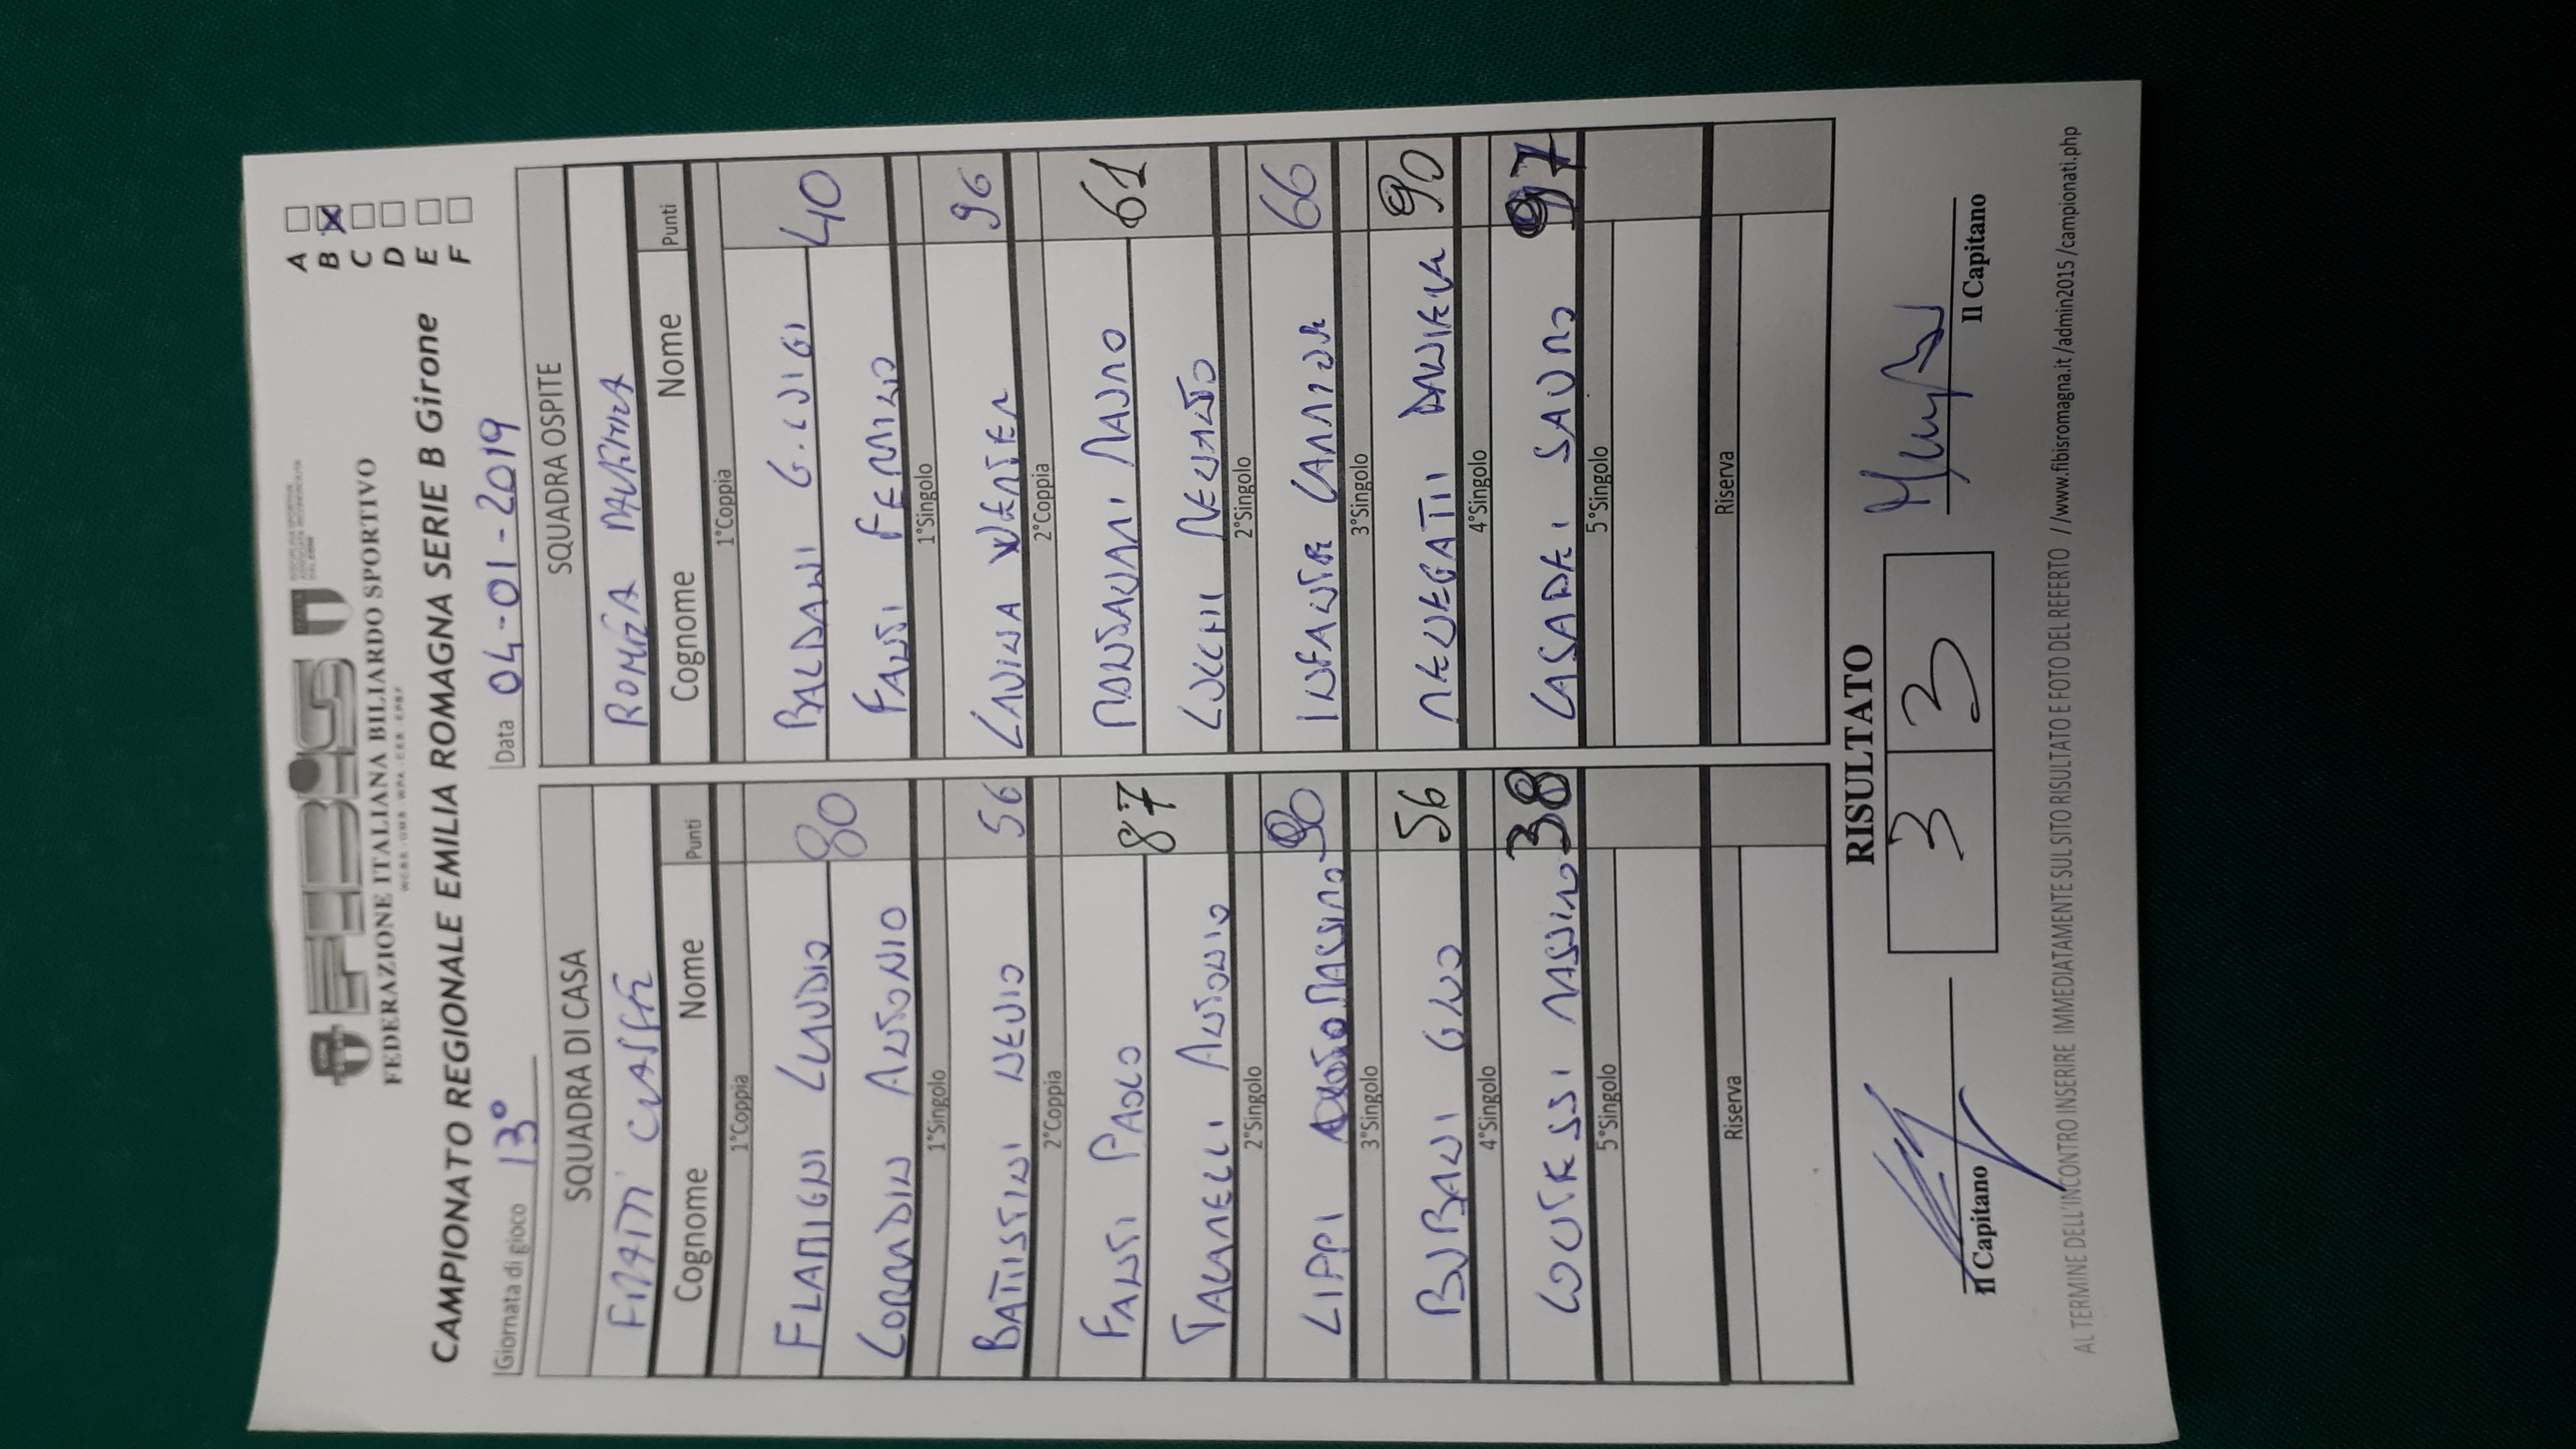 FIBiS
FEDERAZIONE ITALIANA BILIARDO SPORTIVO
CAMPIONATO REGIONALE EMILIA ROMAGNA SERIE B Girone
A
B X
C
D
E
F
Giornata di gioco 13° Data 04-01-2019
SQUADRA DI CASA SQUADRA OSPITE
Cognome Nome Punti Cognome Nome Punti
1°Coppia 1°Coppia
FLAMIGNI CLAUDIO 80 BALDANI G.LUIGI 40
CORRADIN ANTONIO FANTI FERMINO
1°Singolo 1°Singolo
BATTISTINI NEVIO 56 LAVINA WERTER 96
2°Coppia 2°Coppia
FANTI PAOLO 87 MONTANARI MAURO 61
TAGNANELLI ANTONIO LUCCHI
2°Singolo 2°Singolo
LIPPI MASSIMO 90 INFANTE CARMINE 66
3°Singolo 3°Singolo
BUBANI GINO 56 MENEGATTI DANIELA 90
4°Singolo 4°Singolo
MASSIMO 38 CASADEI SAURO 97
5°Singolo 5°Singolo
Riserva Riserva
RISULTATO
3 3
Il Capitano Il Capitano
AL TERMINE DELL'INCONTRO INSERIRE IMMEDIATAMENTE SUL SITO RISULTATO E FOTO DEL REFERTO //www.fibisromagna.it/admin2015/campionati.php